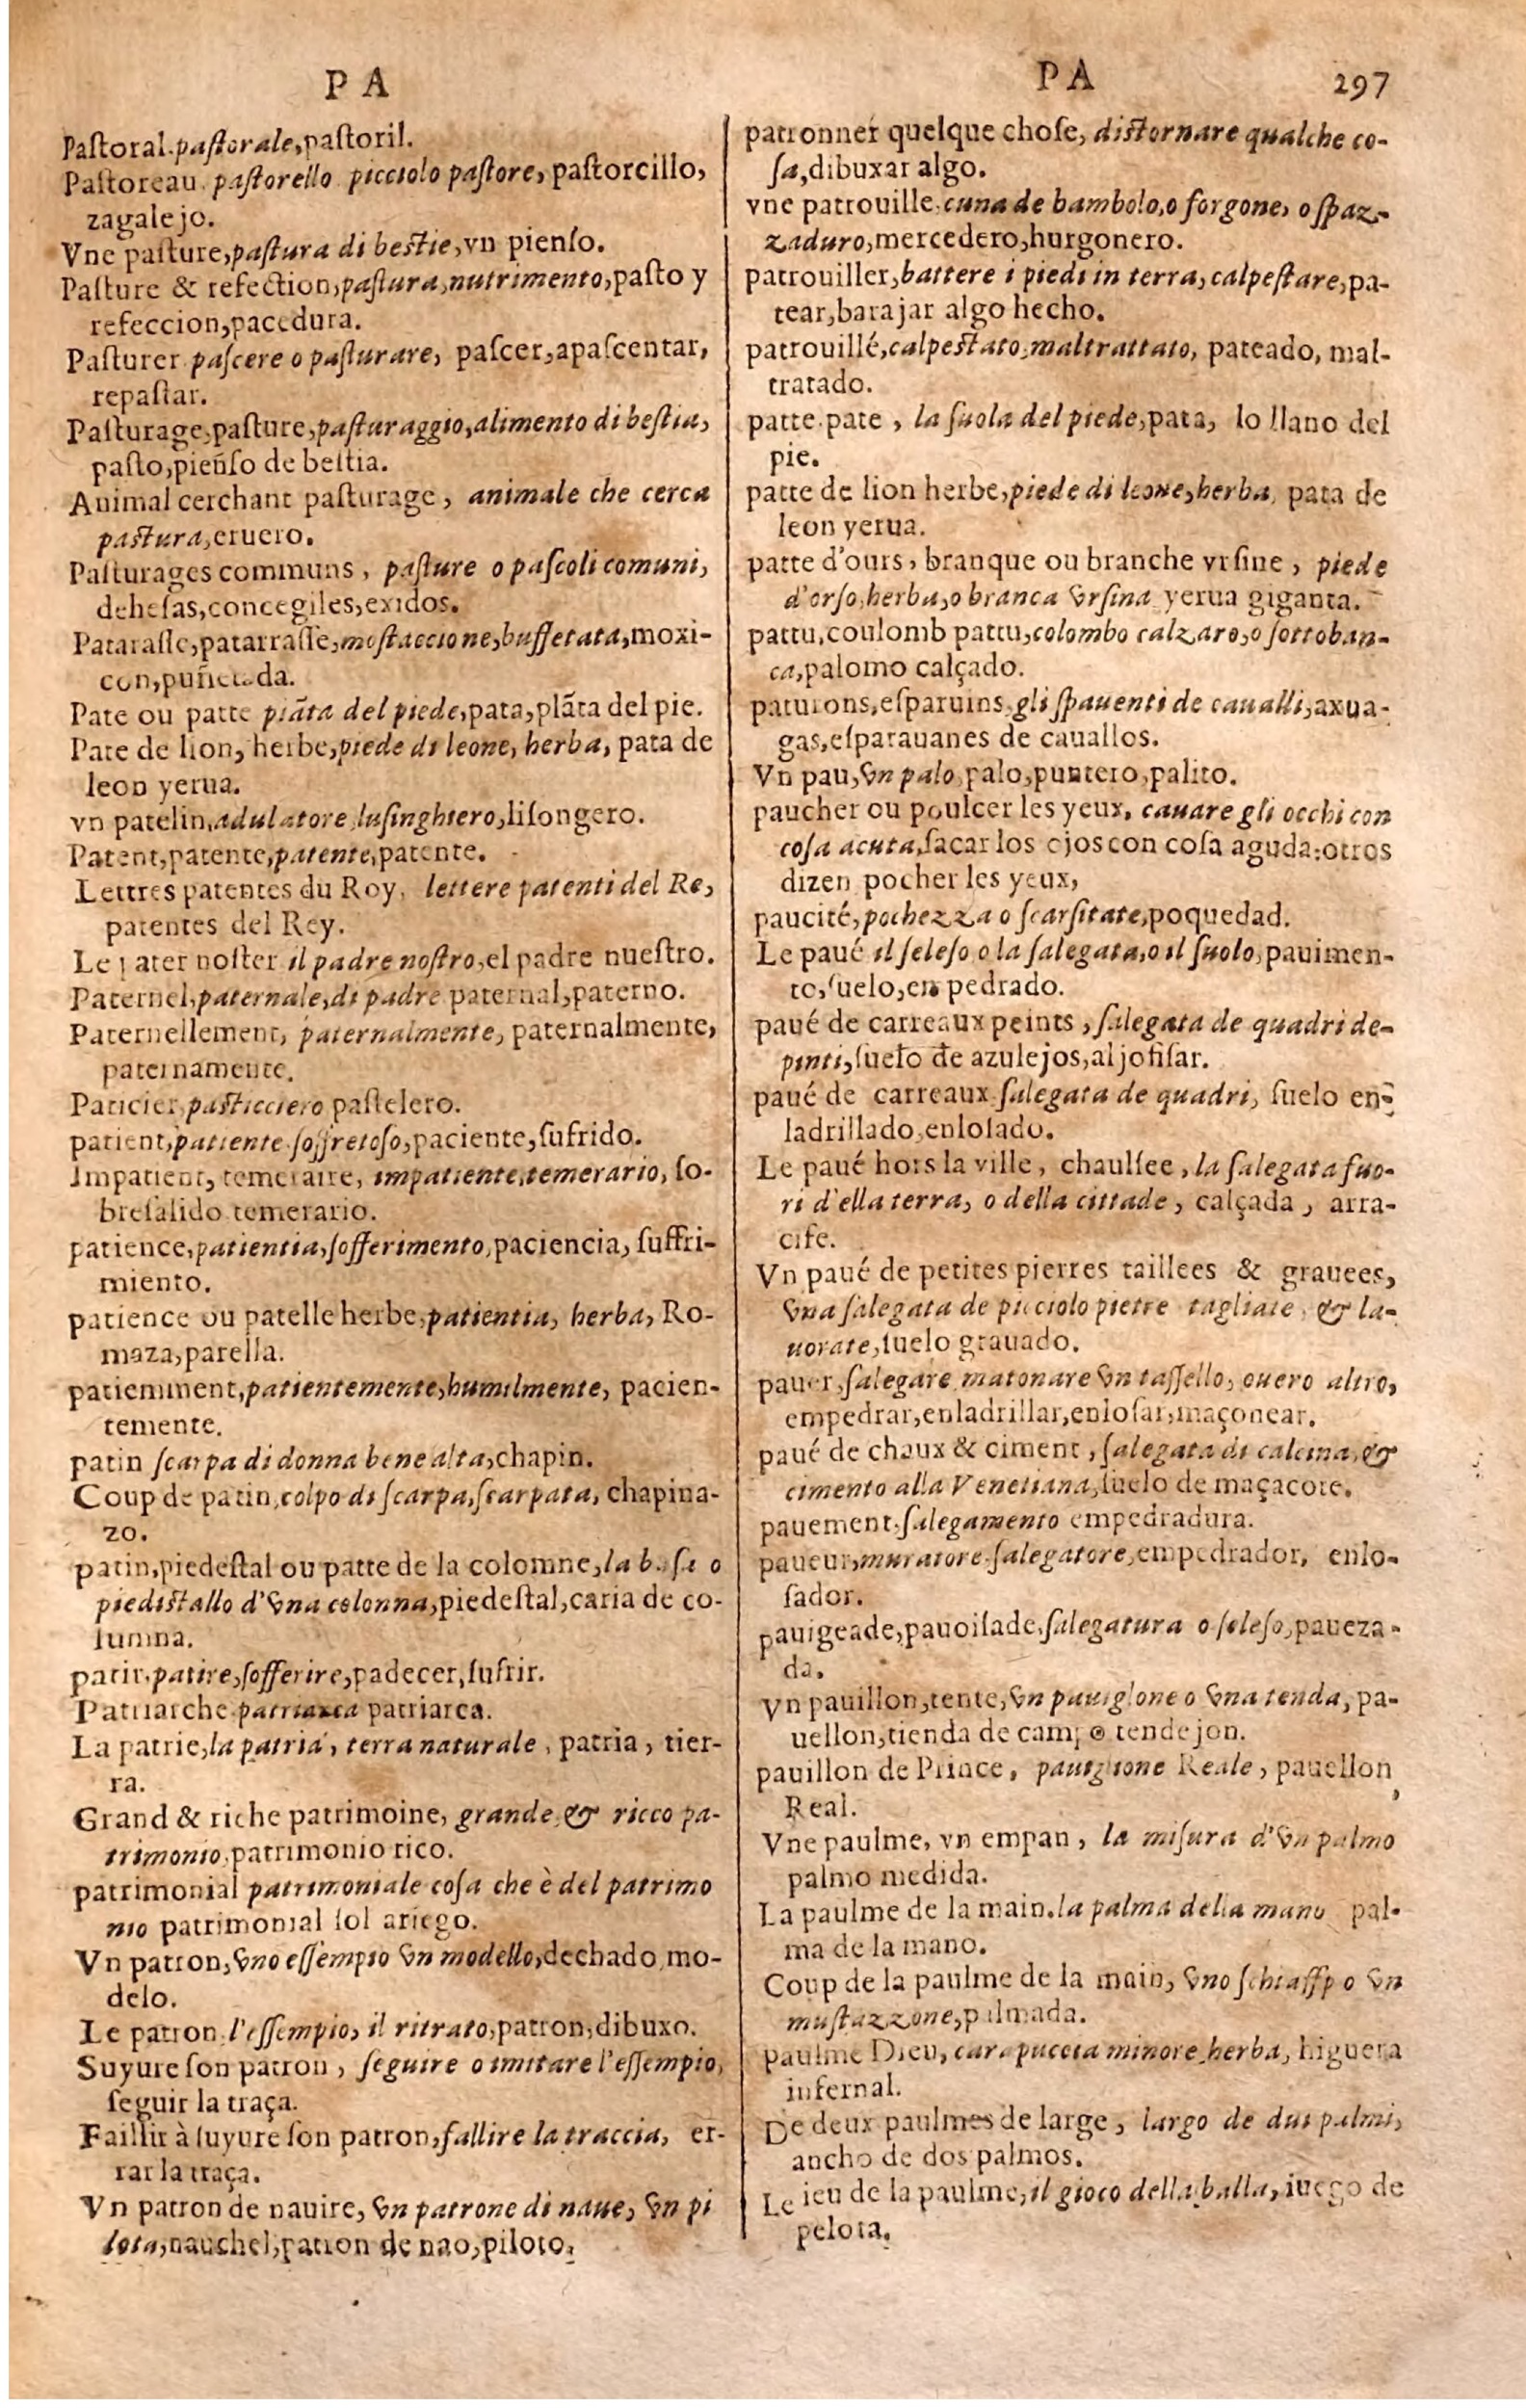 P A
Paſtoral. paſtorale, paſtoril.
Paſtoreau. paſtorello. picciolo paſtore, paſtorcillo,
zagalejo.
Vne paſture, paſtura di beſtie, vn pienſo.
Paſture & refection, paſtura, nutrimento, paſto y
refeccion, pacedura.
Paſturer paſcere o paſturare, paſcer, apaſcentar,
repaſtar.
Paſturage, paſture, paſturaggio, alimento di beſtia,
paſto, pienſo de beſtia.
Animal cerchant paſturage, animale che cerca
paſtura, eruero.
Paſturages communs, paſture o paſcoli comuni,
deheſas, concegiles, exidos.
Pataraſſe, patarraſſe, moſtaccione, buffetata, moxi-
con, puñetada.
Pate ou patte piãta del piede, pata, plãta del pie.
Pate de lion, herbe, piede di leone, herba, pata de
leon yerua.
vn patelin, adulatore luſinghiero, liſongero.
Patent, patente, patente, patente.
Lettres patentes du Roy, lettere patenti del Re,
patentes del Rey.
Le pater noſter il padre noſtro, el padre nueſtro.
Paternel, paternale, di padre paternal, paterno.
Paternellement, paternalmente, paternalmente,
paternamente.
Paticier, paſticciero paſtelero.
patient, patiente ſoffretoſo, paciente, ſufrido.
Impatient, temeraire, impatiente, temerario, ſo-
breſalido temerario.
patience, patientia, ſofferimento, paciencia, ſuffri-
miento.
patience ou patelle herbe, patientia, herba, Ro-
maza, parella.
patiemment, patientemente, humilmente, pacien-
temente.
patin ſcarpa di donna bene alta, chapin.
Coup de patin, colpo di ſcarpa, ſcarpata, chapina-
zo.
patin, piedeſtal ou patte de la colomne, la baſa o
piediſtallo d'vna colonna, piedeſtal, caria de co-
lumna.
patir. patire, ſofferire, padecer, ſufrir.
Patriarche. patriarca patriarca.
La patrie, la patria, terra naturale, patria, tier-
ra.
Grand & riche patrimoine, grande, & ricco pa-
trimonio, patrimonio rico.
patrimonial patrimoniale coſa che è del patrimo
nio patrimonial ſol ariego.
Vn patron, vno eſſempio vn modello, dechado, mo-
delo.
Le patron. l'eſſempio, il ritrato, patron, dibuxo.
Suyure ſon patron, ſeguire o imitare l'eſſempio,
ſeguir la traça.
Faillir à ſuyure ſon patron, fallire la traccia, er-
rar la traça.
Vn patron de nauire, vn patrone di naue, vn pi
lota, nauchel, patron de nao, piloto.
P A 297
patronner quelque choſe, diſtornare qualche co-
ſa, dibuxar algo.
vne patrouille, cuna de bambolo, o forgone, o ſpaz-
zaduro, mercedero, hurgonero.
patrouiller, battere i piedi in terra, calpeſtare, pa-
tear, barajar algo hecho.
patrouillé, calpeſtato, maltrattato, pateado, mal-
tratado.
patte. pate, la ſuola del piede, pata, lo llano del
pie.
patte de lion herbe, piede di leone, herba, pata de
leon yerua.
patte d'ours, branque ou branche vrſine, piede
d'orſo, herba, o branca vrſina yerua giganta.
pattu, coulomb pattu, colombo calzaro, o ſottoban-
ca, palomo calçado.
paturons, eſparuins, gli ſpauenti de caualli, axua-
gas, eſparauanes de cauallos.
Vn pau, vn palo, palo, puntero, palito.
paucher ou poulcer les yeux, cauare gli occhi con
coſa acuta, ſacar los ojos con coſa aguda: otros
dizen pocher les yeux,
paucité, pochezza o ſcarſitate, poquedad.
Le paué il ſeleſo o la ſalegata, o il ſuolo, pauimen-
to, ſuelo, en pedrado.
paué de carreaux peints, ſalegata de quadri de-
pinti, ſuelo de azulejos, aljofiſar.
paué de carreaux ſalegata de quadri, ſuelo en-
ladrillado, enloſado.
Le paué hors la ville, chauſſee, la ſalegata fuo-
ri d'ella terra, o della cittade, calçada, arra-
cife.
Vn paué de petites pierres taillees & grauees,
vna ſalegata de picciolo pietre tagliate, & la-
uorate, ſuelo grauado.
pauer, ſalegare matonare vn taſſello, ouero altro,
empedrar, enladrillar, enloſar, maçonear.
paué de chaux & ciment, ſalegata di calcina, &
cimento alla Venetiana, ſuelo de maçacote.
pauement. ſalegamento empedradura.
paueur, muratore ſalegatore, empedrador, enlo-
ſador.
pauigeade, pauoiſade, ſalegatura o ſeleſo, paueza-
da.
Vn pauillon, tente, vn pauiglone o vna tenda, pa-
uellon, tienda de campo tendejon.
pauillon de Prince, pauiglione Reale, pauellon
Real.
Vne paulme, vn empan, la miſura d'vn palmo
palmo medida.
La paulme de la main. la palma della mano pal-
ma de la mano.
Coup de la paulme de la main, vno ſchiaffo o vn
muſtazzone, palmada.
paulme Dieu, carapuccia minore herba, higuera
infernal.
De deux paulmes de large, largo de dui palmi,
ancho de dos palmos.
Le ieu de la paulme, il gioco della balla, iuego de
pelota.